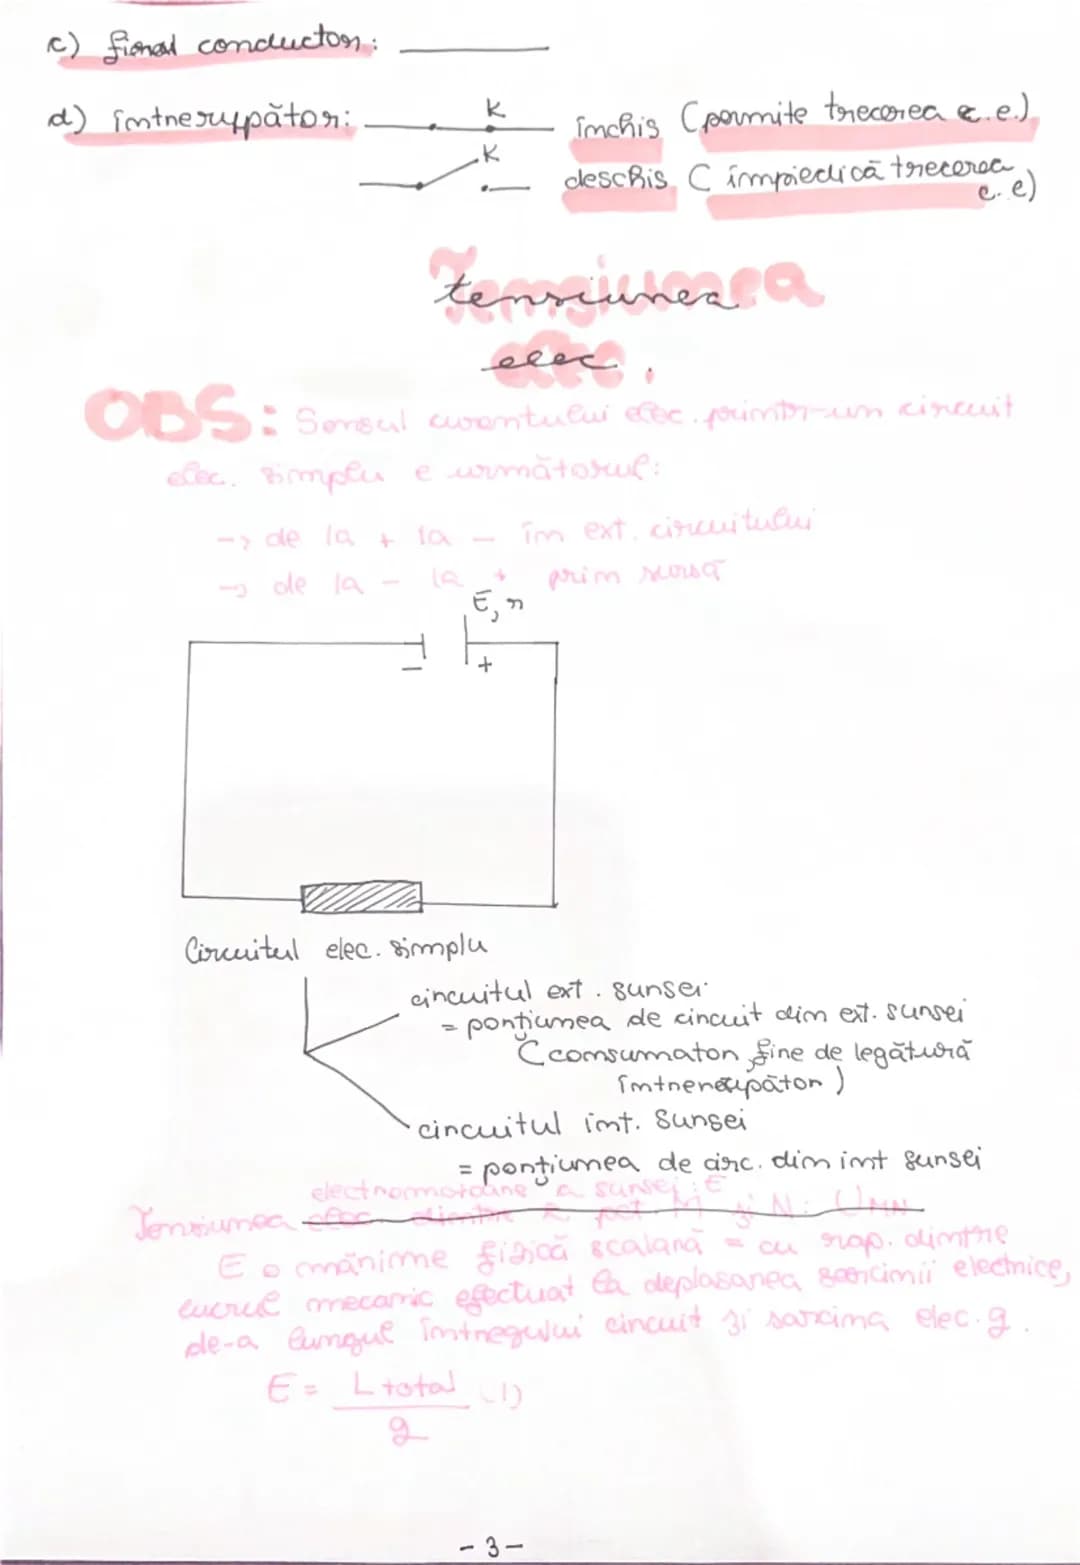 c) firul conductor:
d) întrerupător: K închis (permite trecerea c.e.)
K deschis (împiedică trecerea c.e)
Tensiunea
tensiunea
elec.
OBS: Sensul curentului elec. printr-un circuit
elec. simplu e următorul:
-> de la + la - în ext. circuitului
-> de la - la + prin sursă
E, r
- +
Circuitul elec. simplu
circuitul ext. sursei
= porțiunea de circuit din ext. sursei
(consumator fire de legătură
întrerupător)
circuitul int. sursei
= porțiunea de circ. din int sursei
electromotoare a sursei: E
Tensiunea elec. dintre 2 pct M și N: UMN
E o mărime fizică scalară = cu rap. dintre
lucrul mecanic efectuat la deplasarea sarcinii electrice,
de-a lungul întregului circuit și sarcina elec. q.
E = L total (1)
q
- 3 -